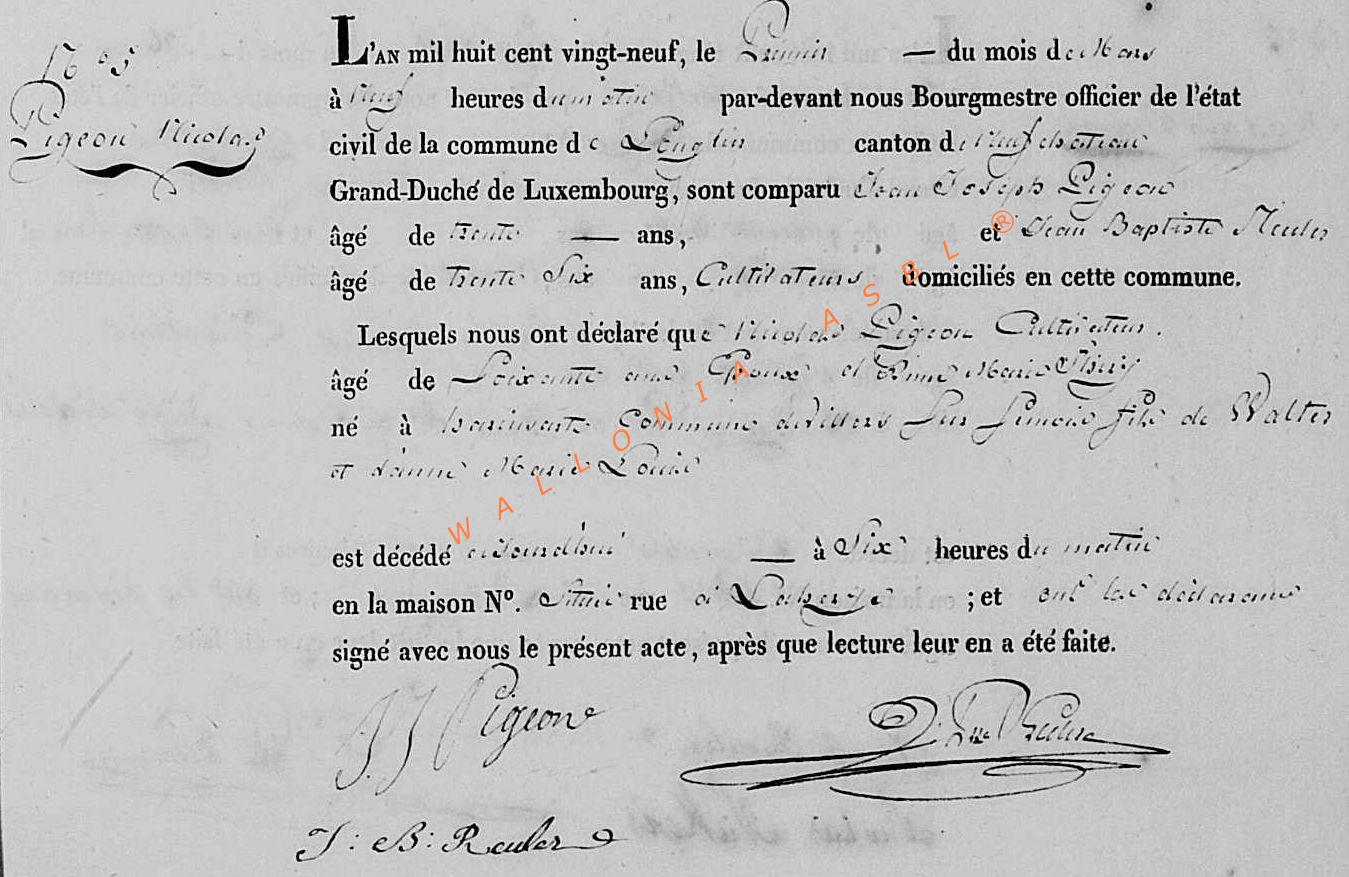 N° 5
Pigeon Nicolas
L'AN mil huit cent vingt-neuf, le Premier — du mois de Mars
à Neuf heures du matin par-devant nous Bourgmestre officier de l'état
civil de la commune de Longlier canton de Neufchateau
Grand-Duché de Luxembourg, sont comparu Jean Joseph Pigeon
âgé de trente — ans, et Jean Baptiste Reuler
âgé de trente Six ans, Cultivateurs domiciliés en cette commune.
Lesquels nous ont déclaré que Nicolas Pigeon Cultivateur.
âgé de Soixante ans Epoux d'Anne Marie
né à Commune de Villers Sur Semois fils de Walter
et d'anne Marie Louise
est décédé aujourdhui — à Six heures du matin
en la maison N°. Située rue a ; et ont les déclarans
signé avec nous le présent acte, après que lecture leur en a été faite.
J. J. Pigeon
J: B: Reuler
WALLONIA ASBL ®